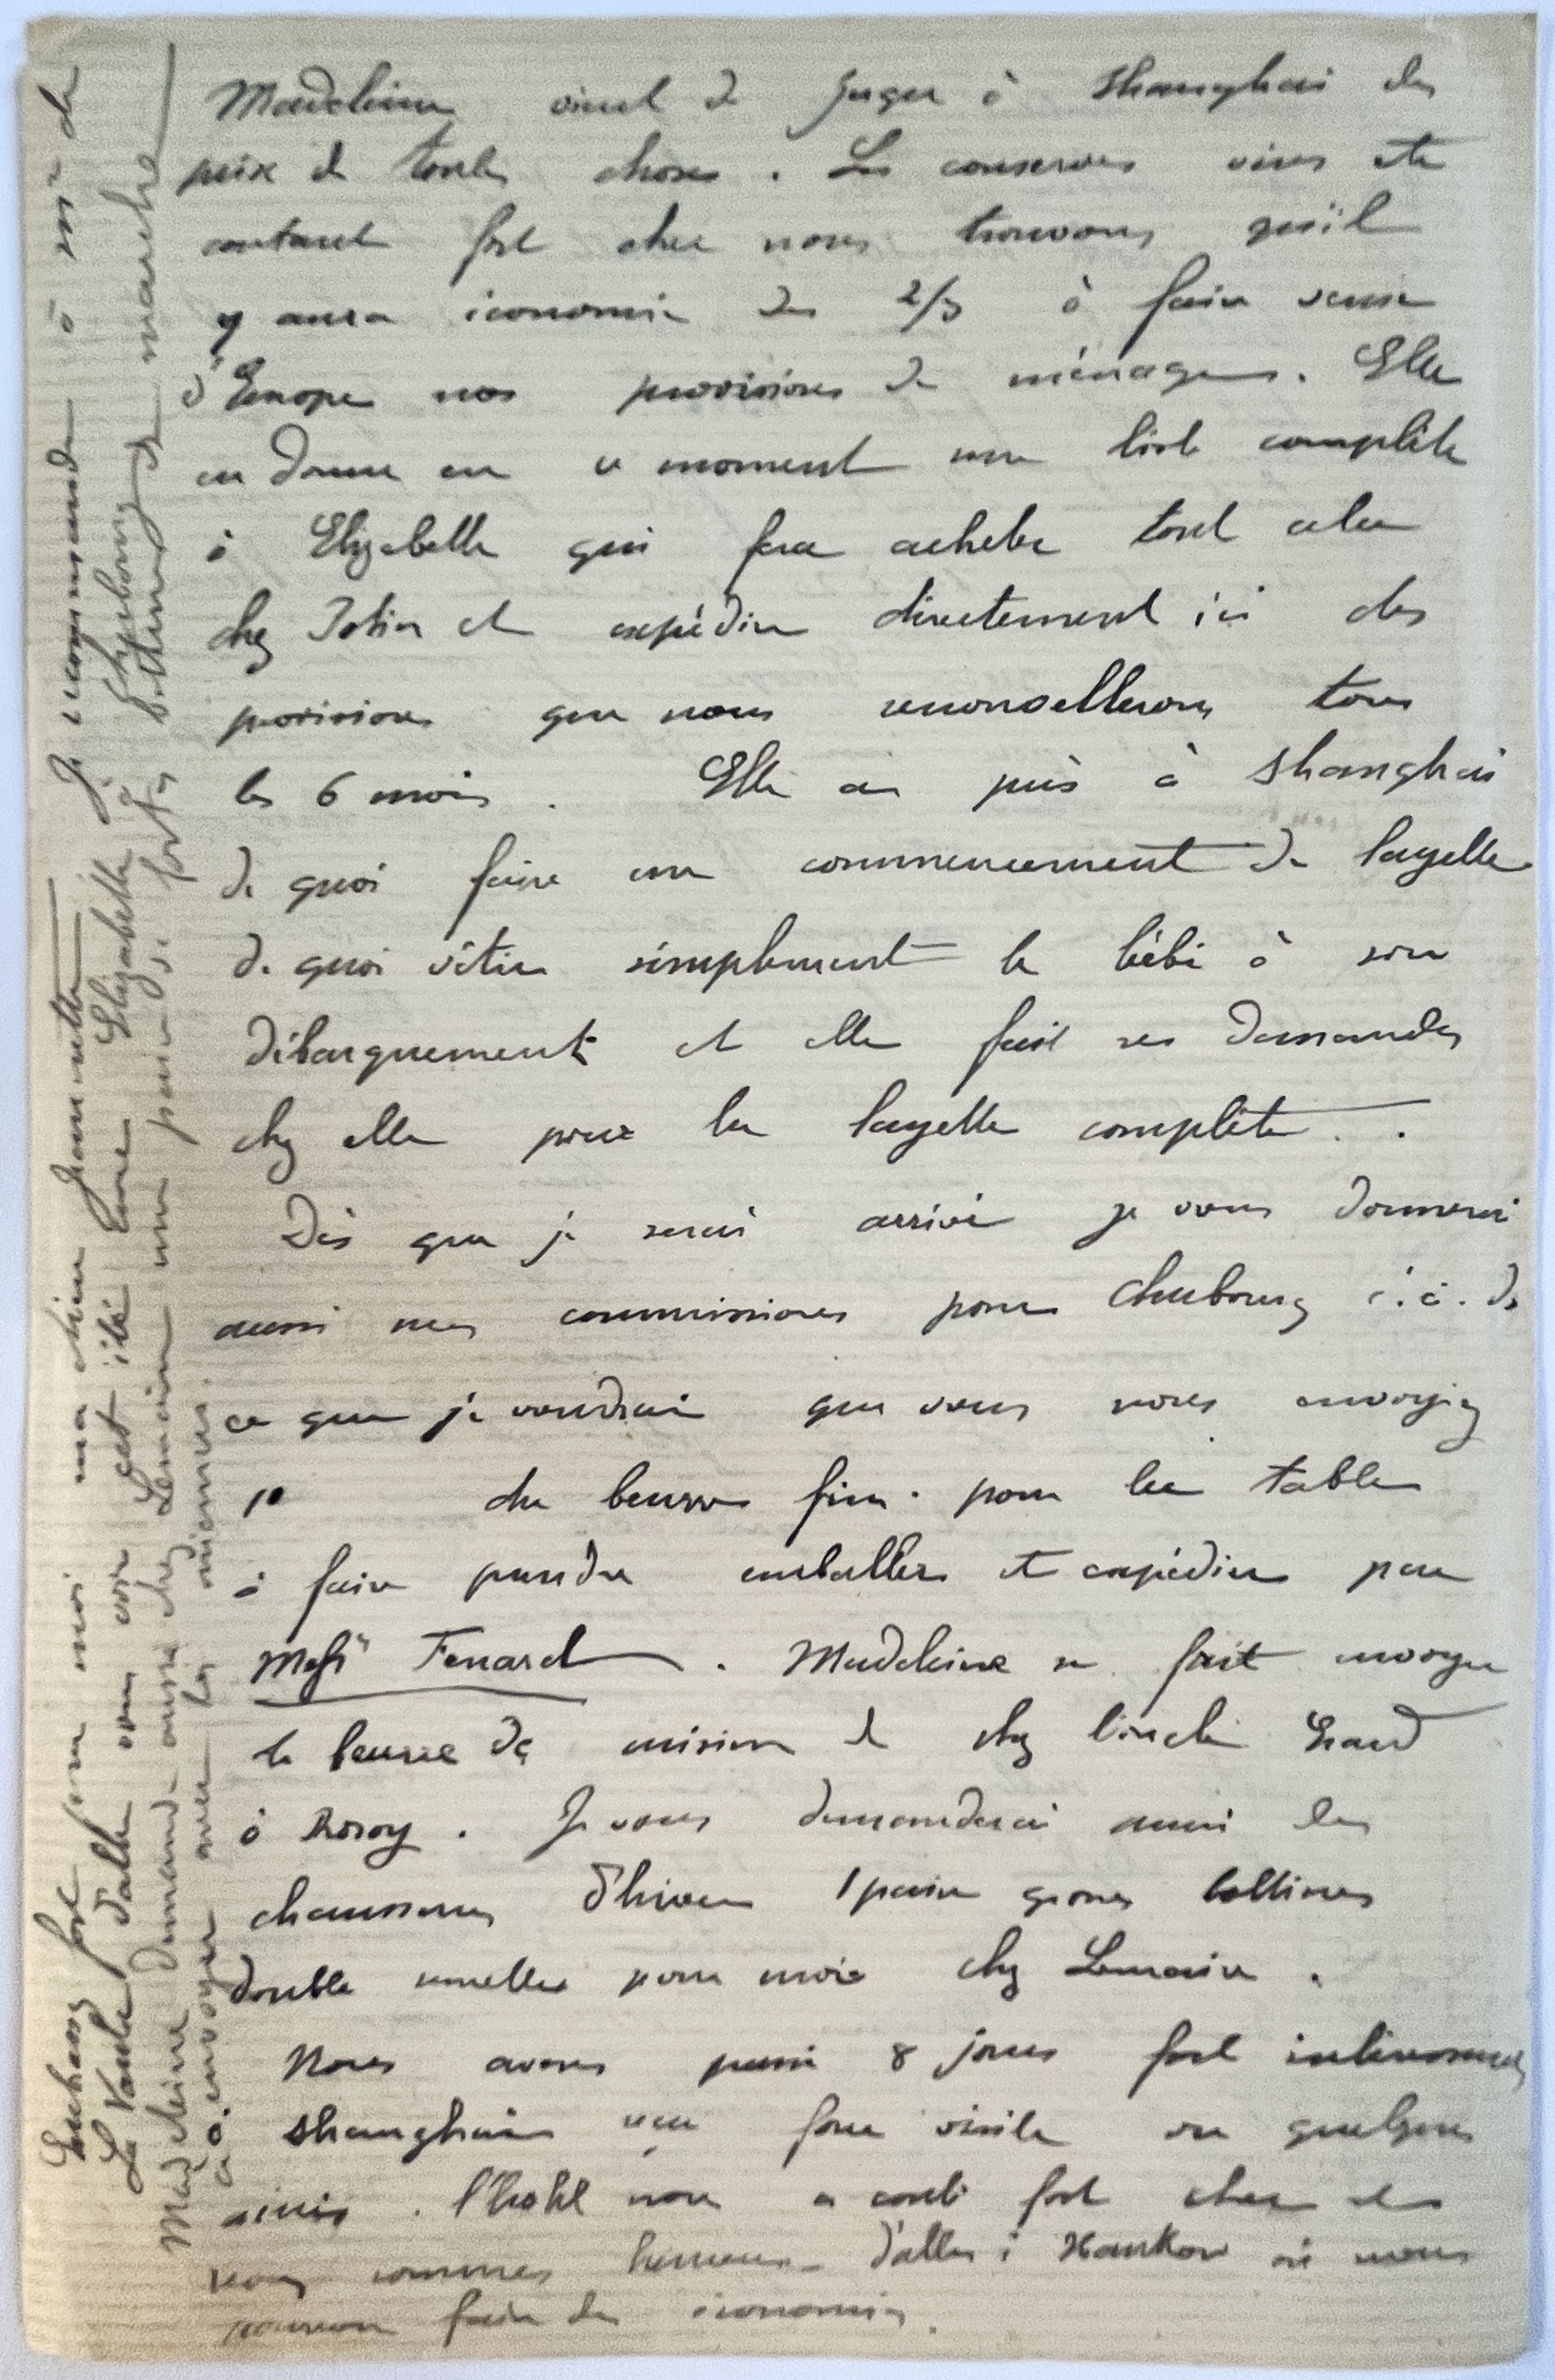 Madeleine vient de juger à Shanghai des
prix de toutes choses. Les conserves vins etc
coutant fort cher nous trouvons qu'il
y aura économie des 2/3 à faire venir
d'Europe nos provisions de ménages. Elle
en donne en ce moment une liste complète
à Elizabeth qui fera acheter tout cela
chez Potin et expédier directement ici des
provisions que nous renouvellerons tous
les 6 mois. Elle a pris à Shanghai
de quoi faire un commencement de layette
de quoi vêtir simplement le bébé à son
débarquement et elle fait ses demandes
chez elle pour la layette complète.
Dès que je serai arrivé je vous donnerai
aussi mes commissions pour Cherbourg c.à.d.
ce que je voudrais que vous nous envoyiez
1° du beurre fin pour la table
à faire prendre emballer et expédier par
Mrs Fenard. Madeleine se fait envoyer
le beurre de cuisine de chez l'oncle
à Rosoy. Je vous demanderai aussi des
chaussures d'hiver 1 paire grosses bottines
double semelles pour moi chez Lemoine.
Nous avons passé 8 jours fort intéressants
à Shanghai reçu force visite vu quelques
amis. l'hotel nous a couté fort cher et
nous sommes heureux d'aller à Hankow où nous
pourrons faire des économies.
fort pour moi ma chère Jeannette Je recommande à Mme de
La Vaulx d'aller vous voir cet été une Elizabeth à Cherbourg
Madeleine demande aussi chez Lemoine une paire de fortes bottines de marche
à envoyer avec les miennes.